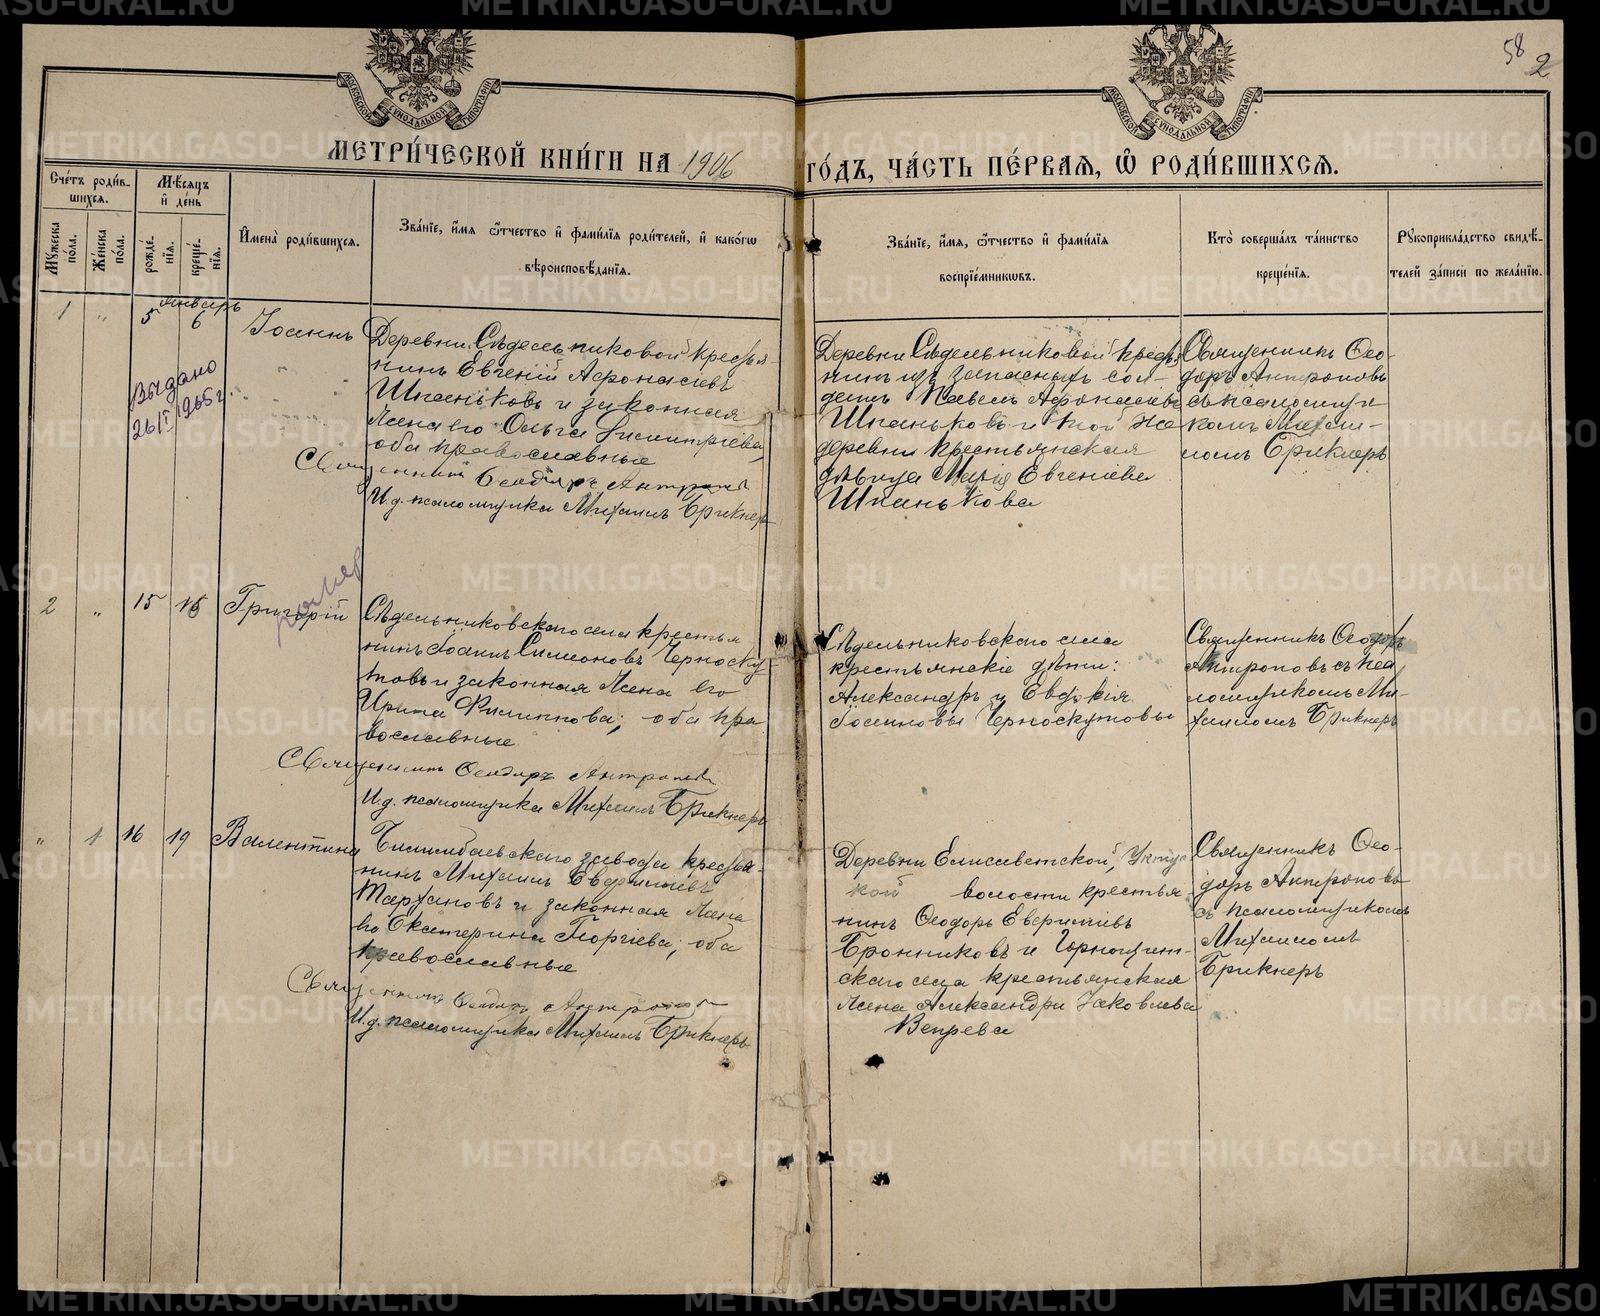 58 2
МОСКОВСКОЙ СѴНОДАЛЬНОЙ ТИПОГРАФІИ
МОСКОВСКОЙ СѴНОДАЛЬНОЙ ТИПОГРАФІИ
МЕТРИ́ЧЕСКОЙ КНИ́ГИ НА 1906 ГО́ДЪ, ЧА́СТЬ ПЕ́РВАЯ, Ѡ РОДИ́ВШИХСЯ.
Сче́тъ роди́в-
шихся.
Мужеска по́ла.
Же́нска по́ла.
Мѣ́сяцъ
и де́нь
рожде́-
нїя.
креще́-
нїя.
И́мена̀ роди́вшихся.
Зва́нїе, и́мя ѻ́тчество и фами́лїя роди́телей, и како́гѡ
вѣроисповѣ́данїя.
Зва́нїе, и́мя, ѻ́тчество и фами́лїя
воспрїе́мниковъ.
Кто̀ соверша́лъ та́инство
креще́нїя.
Рукоприкла́дство свидѣ́-
телей за́писи по жела́нїю.
Январь
1 " 5 6 Іоаннъ
Выдано
26/I 1965 г.
Деревни Сѣдельниковой кресть-
нинъ Евгеній Афонасіевъ
Шпаньковъ и законная
жена его Ольга Димитріева,
оба православные
Священникъ Ѳеодоръ Антропов
И.д. псаломщика Михаилъ Брикнеръ
Деревни Сѣдельниковой крестья
нинъ изъ запасныхъ сол-
датъ Павелъ Афонасьевъ
Шпаньковъ и той же
деревни крестьянская
дѣвица Марія Евгеніева
Шпанькова
Священникъ Ѳео-
доръ Антроповъ
съ псаломщи-
комъ Михаи-
ломъ Брикнеръ
2 " 15 15 Григорій
умер
Сѣдельниковскаго села крестья
нинъ Іоаннъ Симоновъ Черноску
товъ и законная жена его
Ирина Филиппова; оба пра
вославные
Священникъ Ѳеодоръ Антропов
И.д. псаломщика Михаилъ Брикнеръ
Сѣдельниковскаго села
крестьянскіе дѣти:
Александръ и Евдокія
Іоанновы Черноскутовы
Священникъ Ѳеодоръ
Антроповъ съ пса
ломщикомъ Ми-
хаиломъ Брикнеръ
" 1 16 19 Валентина
Билимбаевскаго завода крестья-
нинъ Михаилъ Евфиміевъ
Тархановъ и законная жена
его Екатерина Георгіева; оба
православные
Священникъ Ѳеодоръ Антропов
И.д. псаломщика Михаилъ Брикнеръ
Деревни Елисаветской, Уктус
кой волости крестья
нинъ Ѳеодоръ
Бронниковъ и Горнощит-
скаго села крестьянская
жена Александра Іаковлева
Вепрева
Священникъ Ѳео-
доръ Антроповъ
съ псаломщикомъ
Михаиломъ
Брикнеръ
METRIKI.GASO-URAL.RU